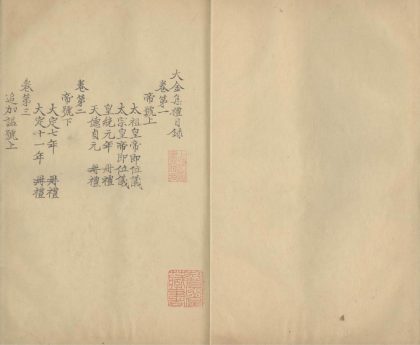 大金集禮目錄
卷第一
帝號上
太祖皇帝即位議
太宗皇帝即位議
皇統元年 冊禮
天德貞元 冊禮
卷第二
帝號下
大定七年 冊禮
大定十一年 冊禮
卷第三
追加諡號上